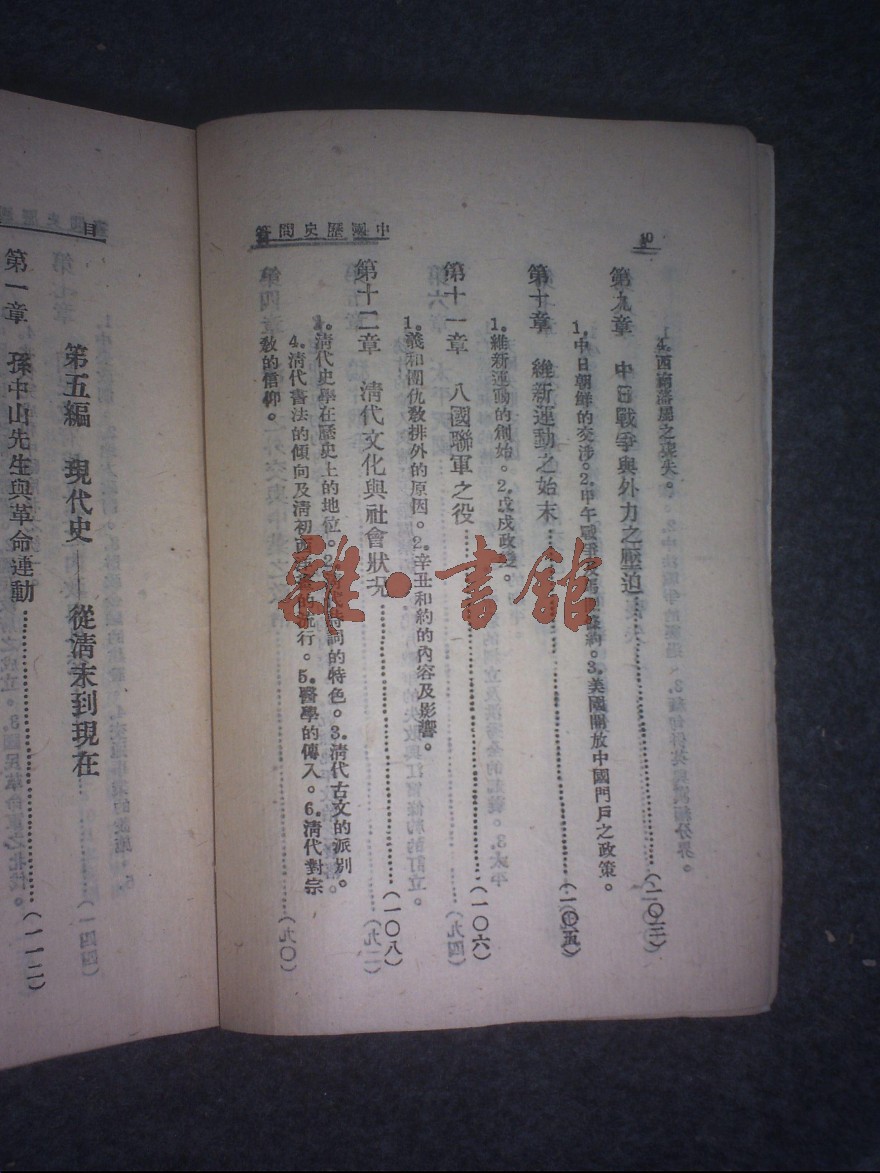 中國歷史問答
10
4.西南藩屬之喪失。
第九章　中日戰爭與外力之壓迫……(一〇三)
1.中日朝鮮的交涉。2.甲午戰爭 3.美國開放中國門戶之政策。
第十章　維新運動之始末……(一〇五)
1.維新運動的創始。2.戊戌政變。
第十一章　八國聯軍之役……(一〇六)
1.義和團仇敎排外的原因。2.辛丑和約的內容及影響。
第十二章　清代文化與社會狀况……(一〇八)
1.清代史學在歷史上的地位。2. 詞的特色。3.清代古文的派別。
4.清代書法的傾向及清初 的流行。5.醫學的傳入。6.清代對宗
敎的信仰。
目
第五編　現代史　從清末到現在
第一章　孫中山先生與革命運動……(一一二)
雜·書館